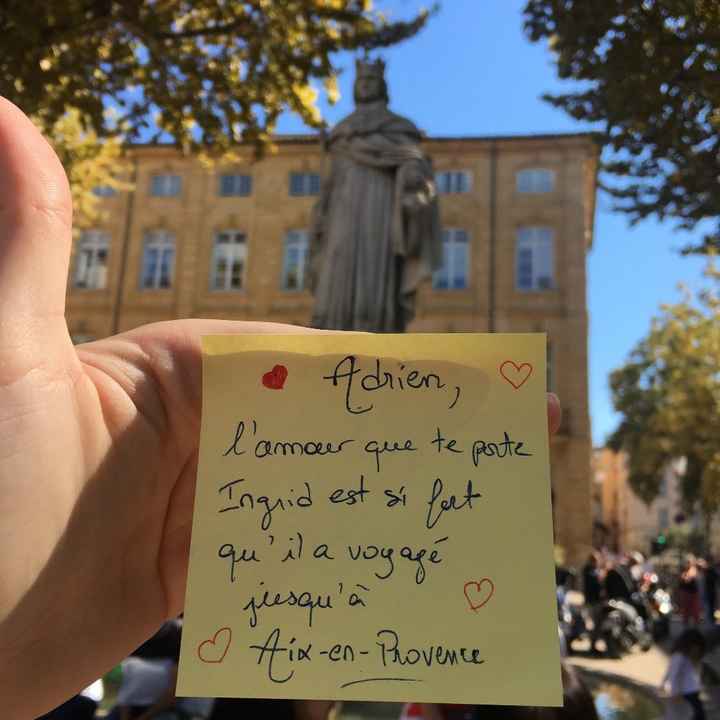 Adrien,
l'amour que te porte
Ingrid est si fort
qu'il a voyagé
jusqu'à
Aix-en-Provence